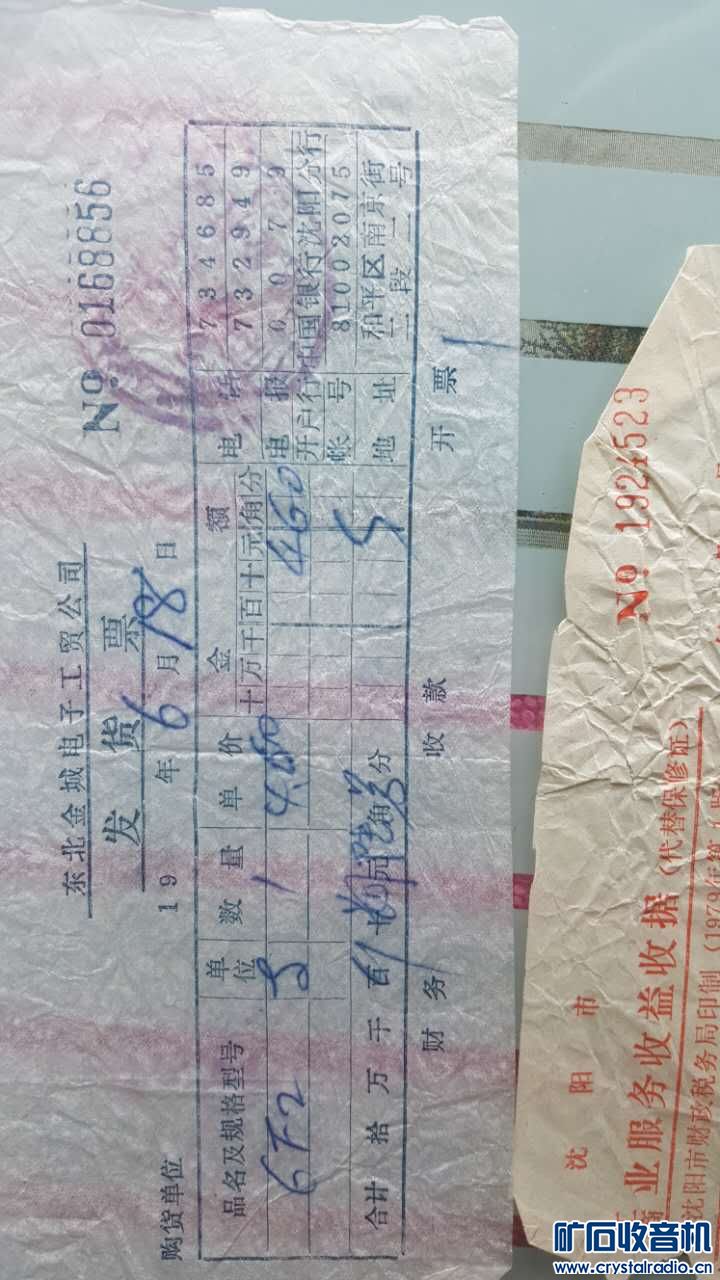 东北金城电子工贸公司
发货票
No 0168856
19 年 6 月 18 日
购货单位
品名及规格型号 单位 数量 单价 金额
十万千百十元角分
6F2 1 460
合计 拾 万 千 百 元 角 分
电话 734685
732949
电报 6079
开户行 中国银行沈阳分行
帐号 81002075
地址 和平区南京街
一段 号
财务 收款 开票
No 1921523
沈阳市
商业服务收益收据(代替保修证)
沈阳市财政税务局印制(1979年第
矿石收音机
www.crystalradio.cn